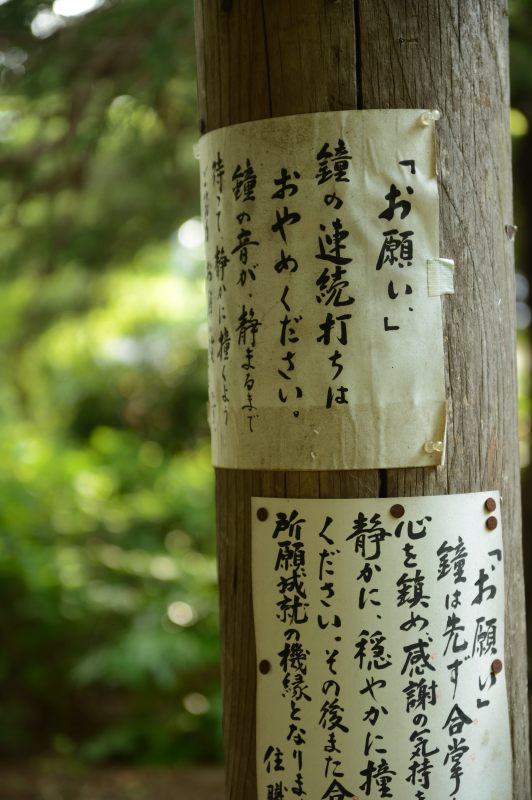 「お願い」
鐘の連続打ちは
おやめください。
鐘の音が、静まるまで
待って静かに撞くよう
「お願い」
鐘は先ず合掌
心を鎮め、感謝の気持
静かに、穏やかに撞
ください。その後また合
所願成就の機縁となりま
住職